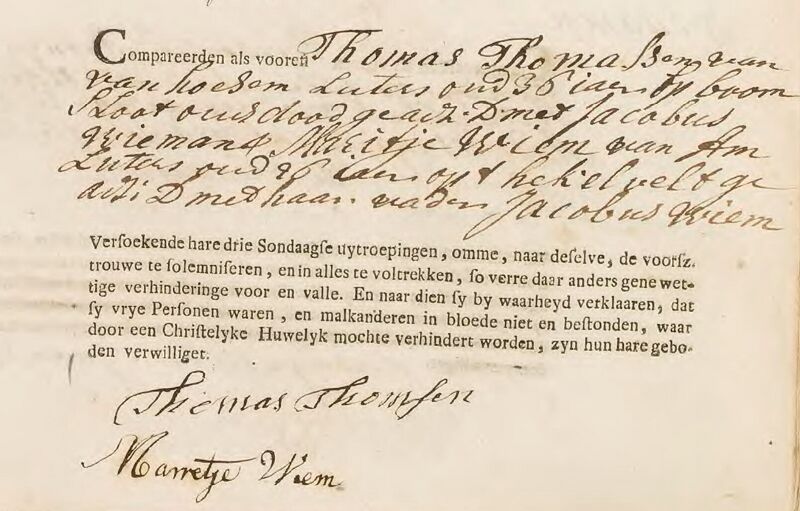 Compareerden als vooren Thomas Thomassen van
van hoesem Luters oud 36 iaer op boom
Sloot ouders dood geass. D met Jacobus
Wiem an & Marritje Wiem van Am
Luters oud 26 iaer opt hekelvelt ge
ass: D met haar vader Jacobus Wiem
Verſoekende hare drie Sondaagſe uytroepingen, omme, naar deſelve, de voorſz.
trouwe te ſolemniſeren, en in alles te voltrekken, ſo verre daar anders gene wet-
tige verhinderinge voor en valle. En naar dien ſy by waarheyd verklaaren, dat
ſy vrye Perſonen waren, en malkanderen in bloede niet en beſtonden, waar
door een Chriſtelyke Huwelyk mochte verhindert worden, zyn hun hare gebo-
den verwilliget.
Thomas Thomſen
Marretje Wiem